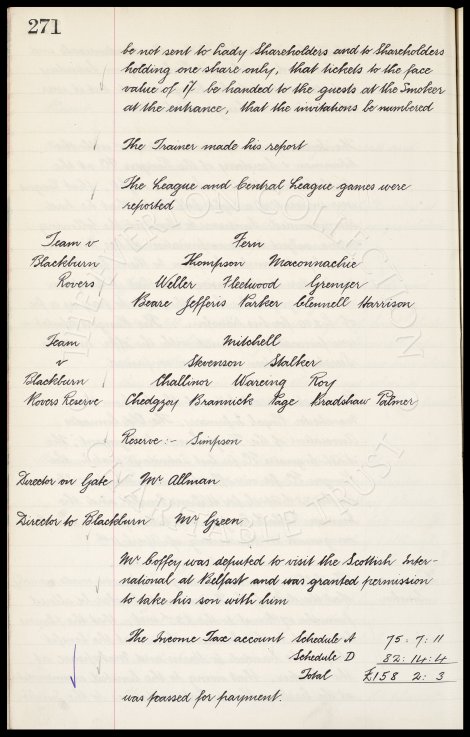 271
be not sent to Lady Shareholders and to Shareholders
holding one share only, that tickets to the face
value of 1/- be handed to the guests at the Smoker
at the entrance, that the invitations be numbered
The Trainer made his report
The League and Central League games were
reported
Team v Fern
Blackburn Thompson Maconnachie
Rovers Weller Fleetwood Grenyer
Beare Jefferis Parker Clennell Harrison
Team Mitchell
v Stevenson Stalker
Blackburn Challinor Wareing Roy
Rovers Reserve Chedgzoy Brannick Page Bradshaw Palmer
Reserve:- Simpson
Director on Gate Mr Allman
Director to Blackburn Mr Green
Mr Coffey was deputed to visit the Scottish Inter-
national at Belfast and was granted permission
to take his son with him
The Income Tax account Schedule A 75 : 7 : 11
Schedule D 82 : 14 : 4
Total £158 2 : 3
was passed for payment.
THE EVERTON COLLECTION
CHARITABLE TRUST